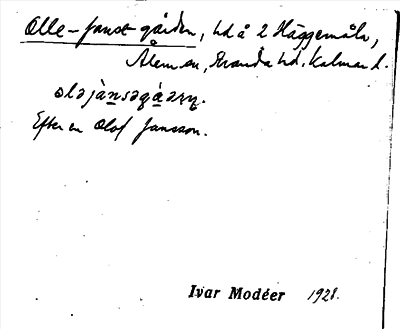 Olle-Janse-gården, hd å 2 Häggemåla,
Ålem sn, Stranda hd. Kalmar l.
oləjànsəgàən.
Efter en Olof Jansson.
Ivar Modéer 1928.